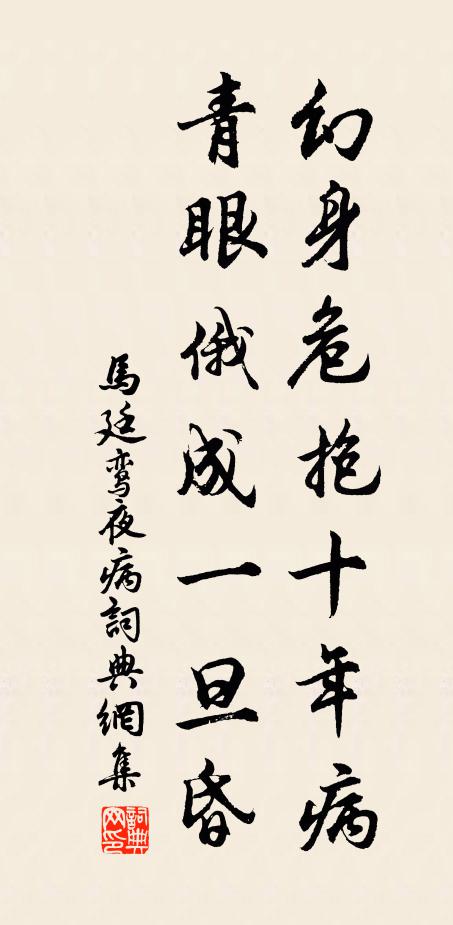 幻身危抱十年病
青眼俄成一旦昏
馬廷鸾夜病詞典網集
詞典网印